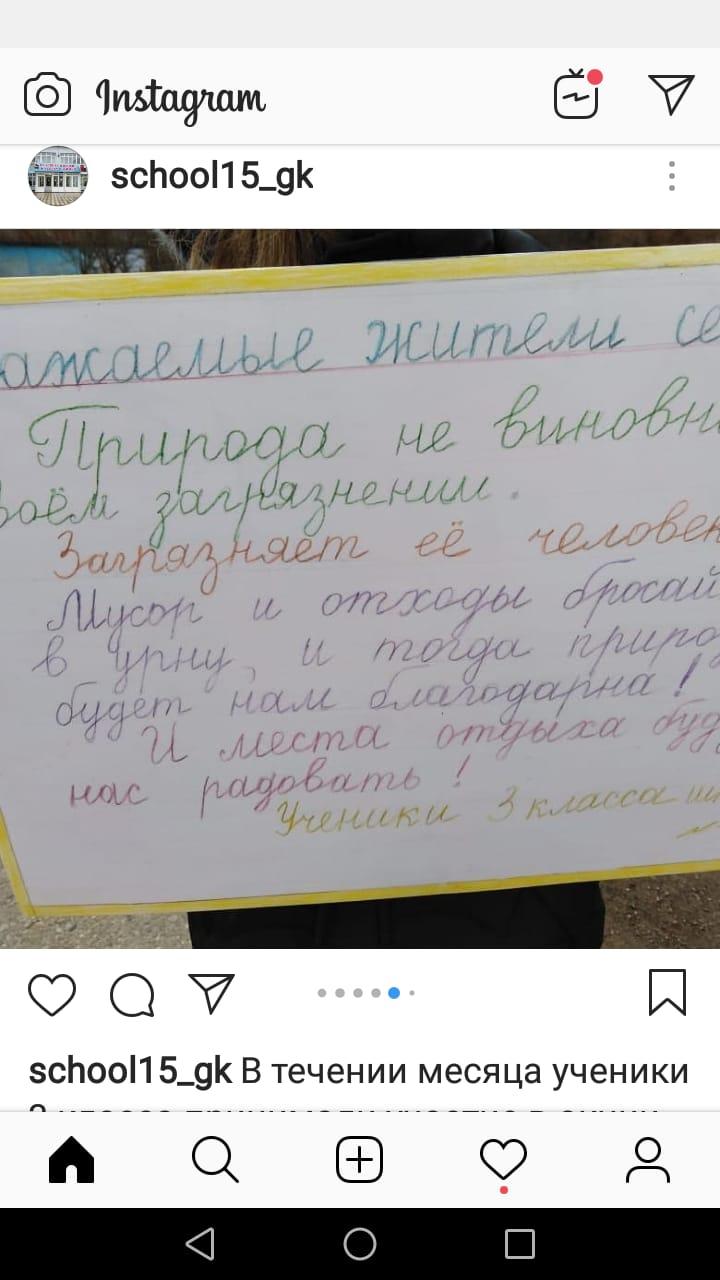 Instagram
school15_gk
ажаемые жители се
Природа не виновн
воём загрязнении.
Загрязняет её человек
Мусор и отходы бросай
в урну, и тогда приро
будет нам благодарна!
И места отдыха буд
нас радовать!
Ученики 3 класса ш
school15_gk В течении месяца ученики
3 класса принимали участие в акции